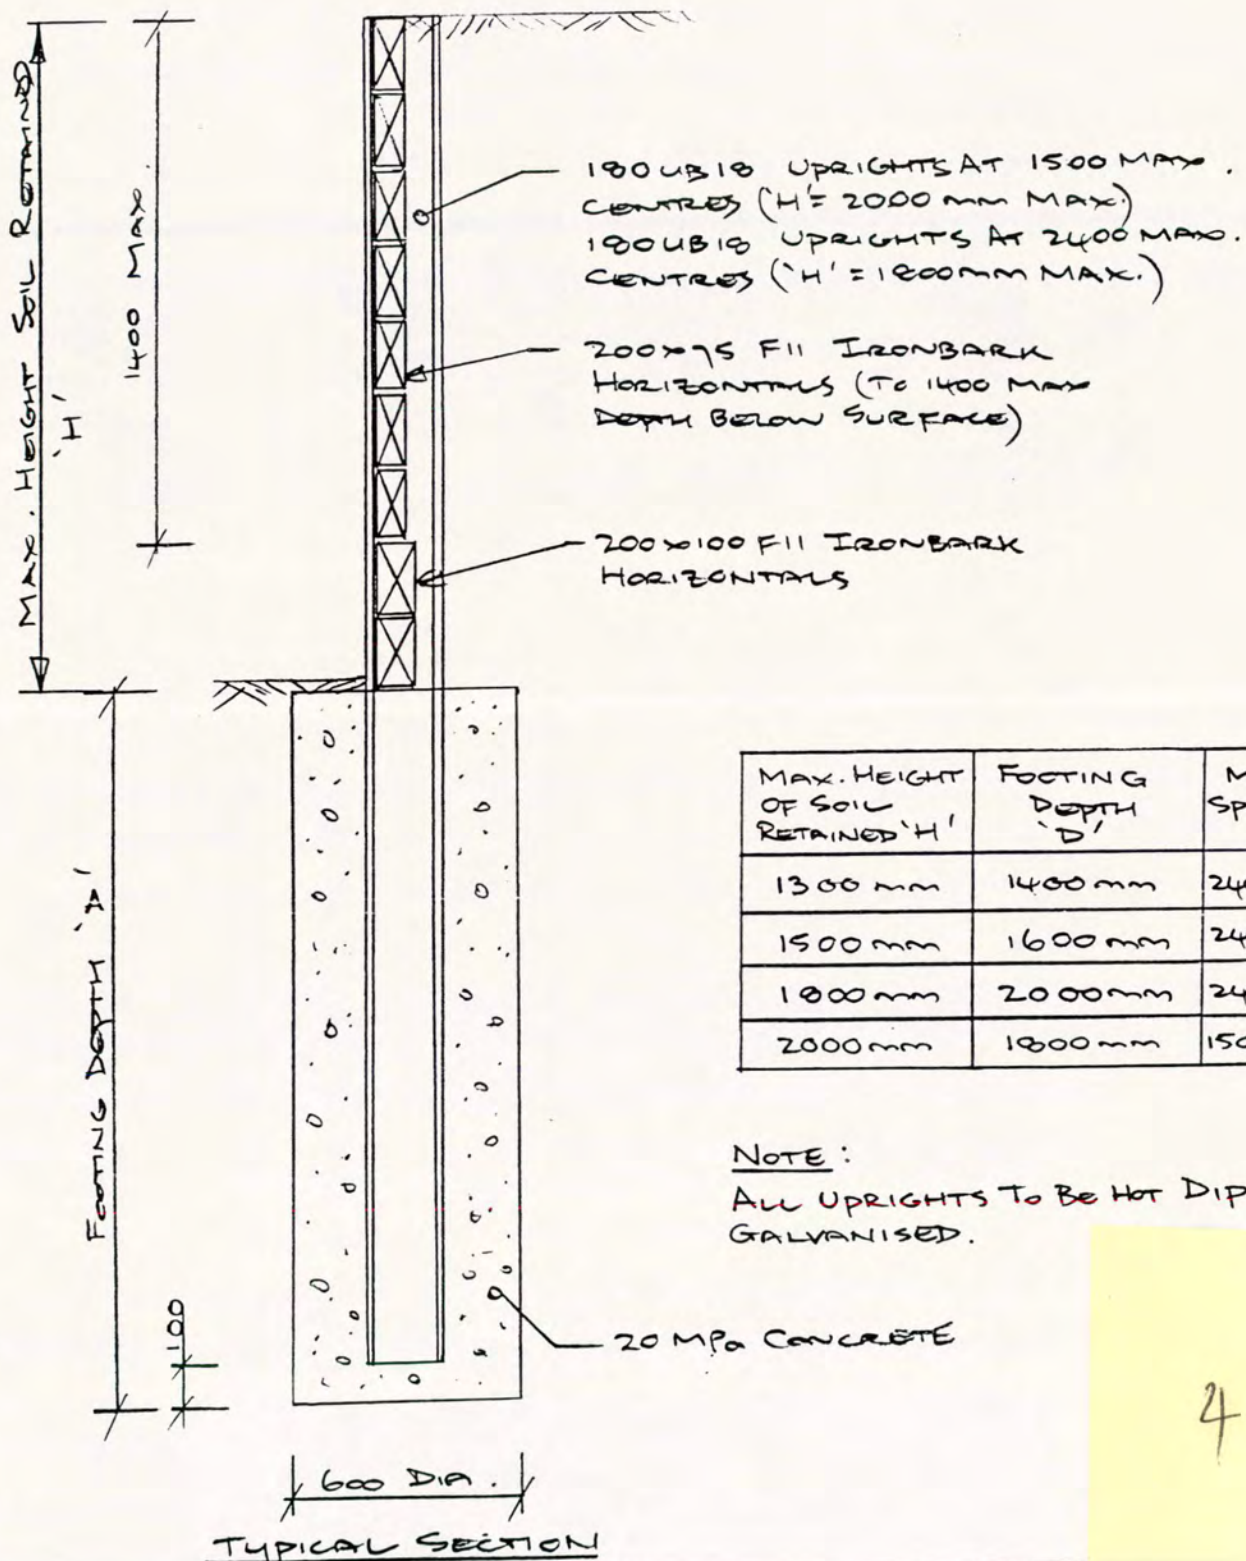 MAX. HEIGHT SOIL RETAINED
'H'
1400 MAX.
180UB18 UPRIGHTS AT 1500 MAX.
CENTRES ('H'= 2000 mm MAX.)
180UB18 UPRIGHTS AT 2400 MAX.
CENTRES ('H' = 1800mm MAX.)
200x75 F11 IRONBARK
HORIZONTALS (TO 1400 MAX
DEPTH BELOW SURFACE)
200x100 F11 IRONBARK
HORIZONTALS
MAX. HEIGHT OF SOIL RETAINED 'H'
FOOTING DEPTH 'D'
1300 mm 1400 mm
1500 mm 1600 mm
1800 mm 2000 mm
2000 mm 1800 mm
FOOTING DEPTH 'D'
100
NOTE:
ALL UPRIGHTS TO BE HOT DIP
GALVANISED.
20 MPa CONCRETE
4
600 DIA.
TYPICAL SECTION